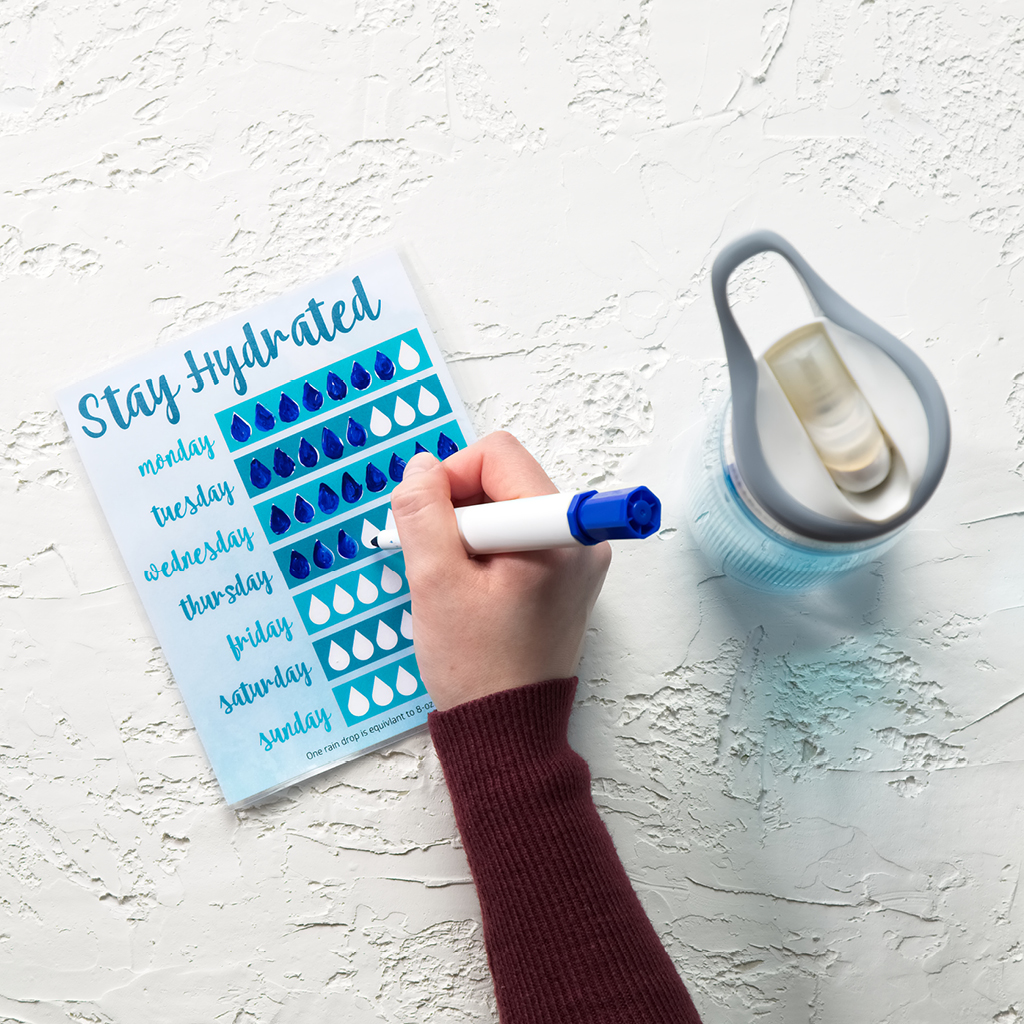 Stay Hydrated
monday
tuesday
wednesday
thursday
friday
saturday
sunday
One rain drop is equivlant to 8-oz